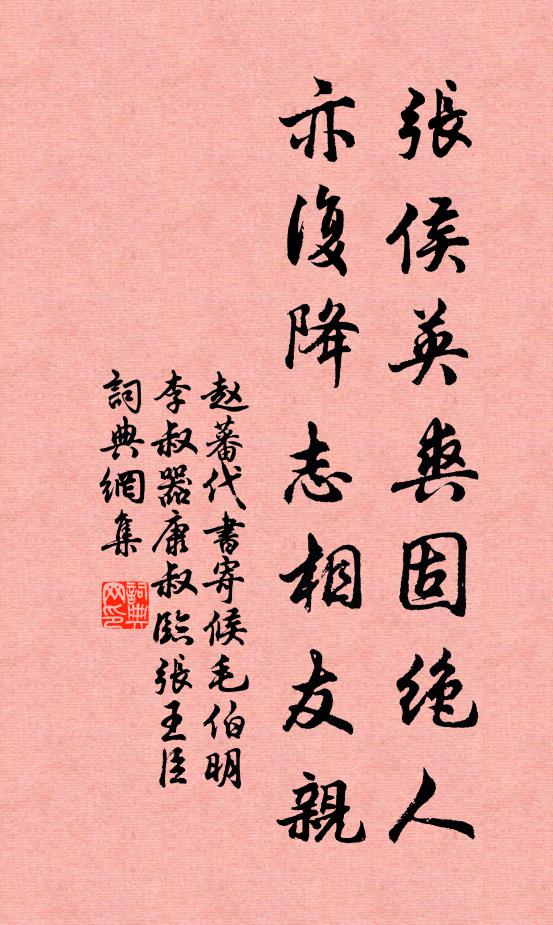 張侯英爽固绝人
亦復降志相友親
赵蕃代書寄候毛伯明
李叔器康叔臨張王臣
詞典網集
詞典网印